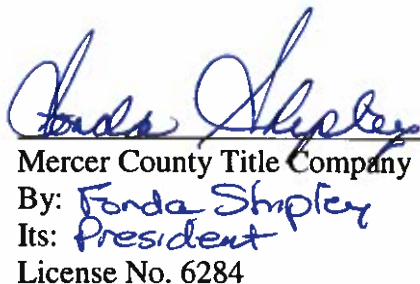 Fonda Shipley
Mercer County Title Company
By: Fonda Shipley
Its: President
License No. 6284